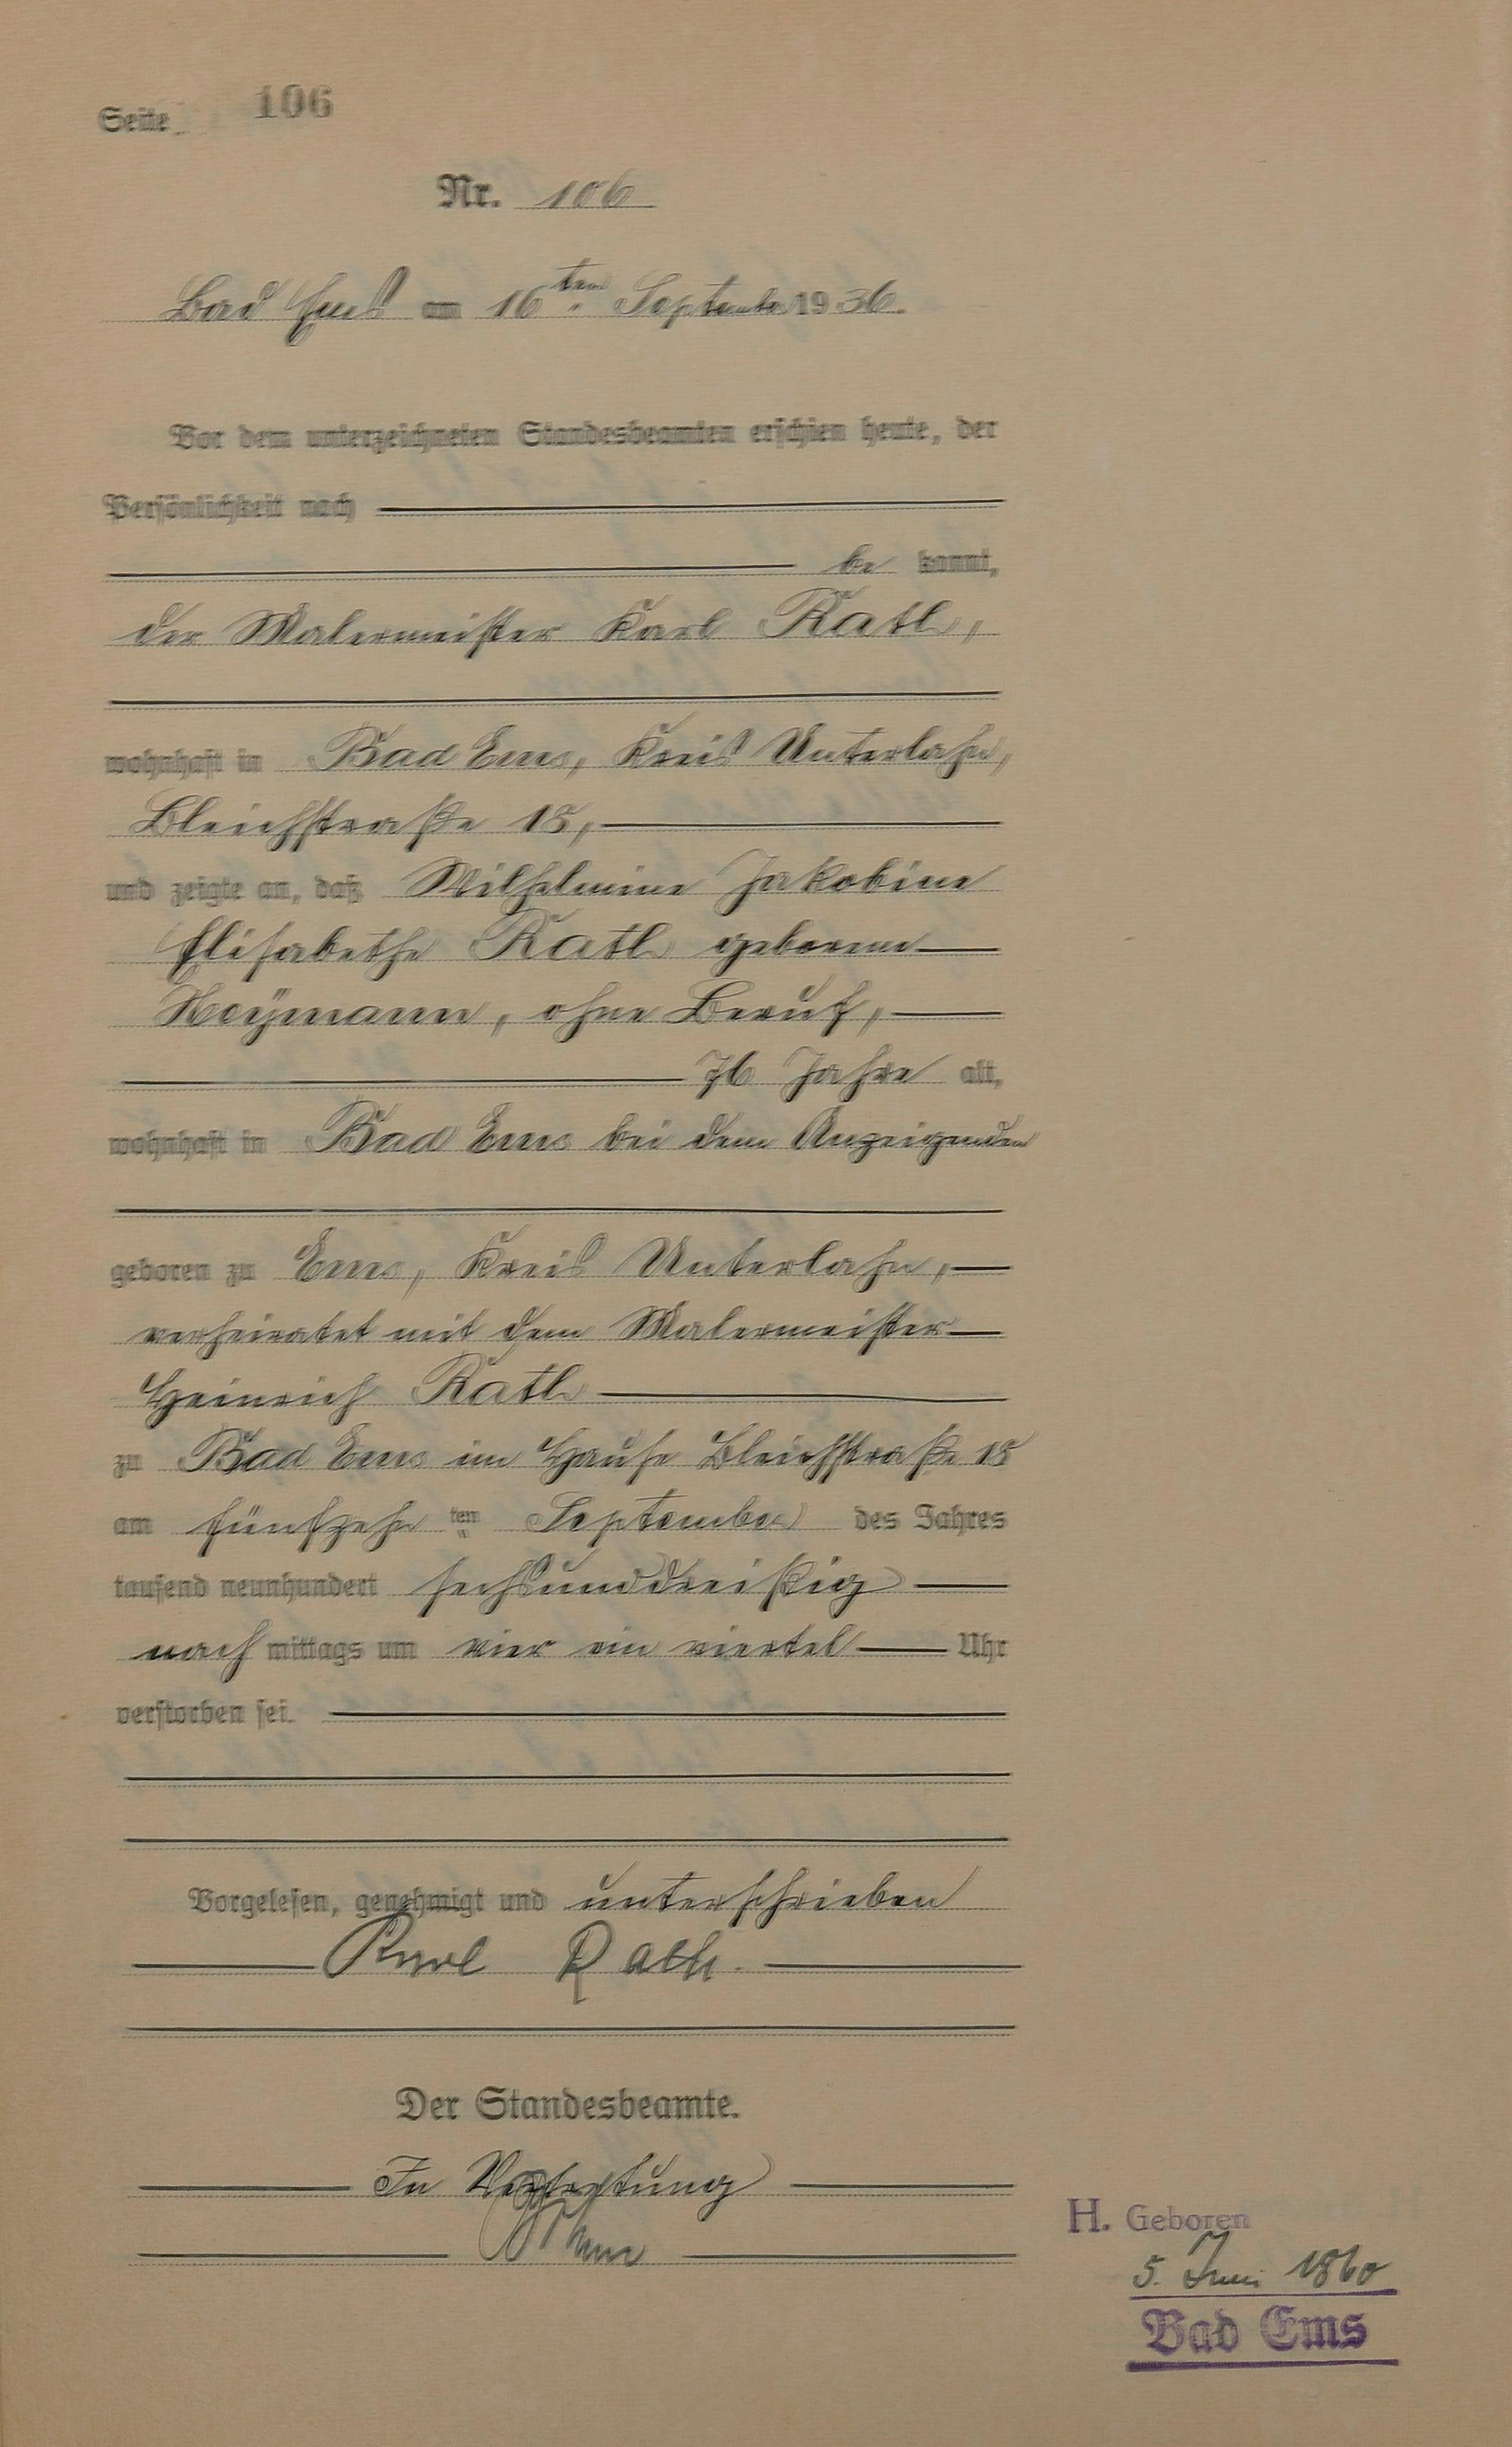 Seite 106
Nr. 106
Bad Ems am 16ten September 1936.
Vor dem unterzeichneten Standesbeamten erschien heute, der
Persönlichkeit nach
be kannt,
der Malermeister Karl Rath,
wohnhaft in Bad Ems, Kreis Unterlahn,
Bleichstraße 18,
und zeigte an, daß Wilhelmine Jakobine
Elisabethe Rath geborene
Heymann, ohne Beruf,
76 Jahre alt,
wohnhaft in Bad Ems bei dem Anzeigenden
geboren zu Ems, Kreis Unterlahn,
verheiratet mit dem Malermeister
Heinrich Rath
zu Bad Ems im Hause Bleichstraße 18
am fünfzehn ten September des Jahres
tausend neunhundert sechsunddreißig
nach mittags um vier ein viertel Uhr
verstorben sei.
Vorgelesen, genehmigt und unterschrieben
Karl Rath.
Der Standesbeamte.
In Vertretung
H. Geboren
5. Juni 1860
Bad Ems